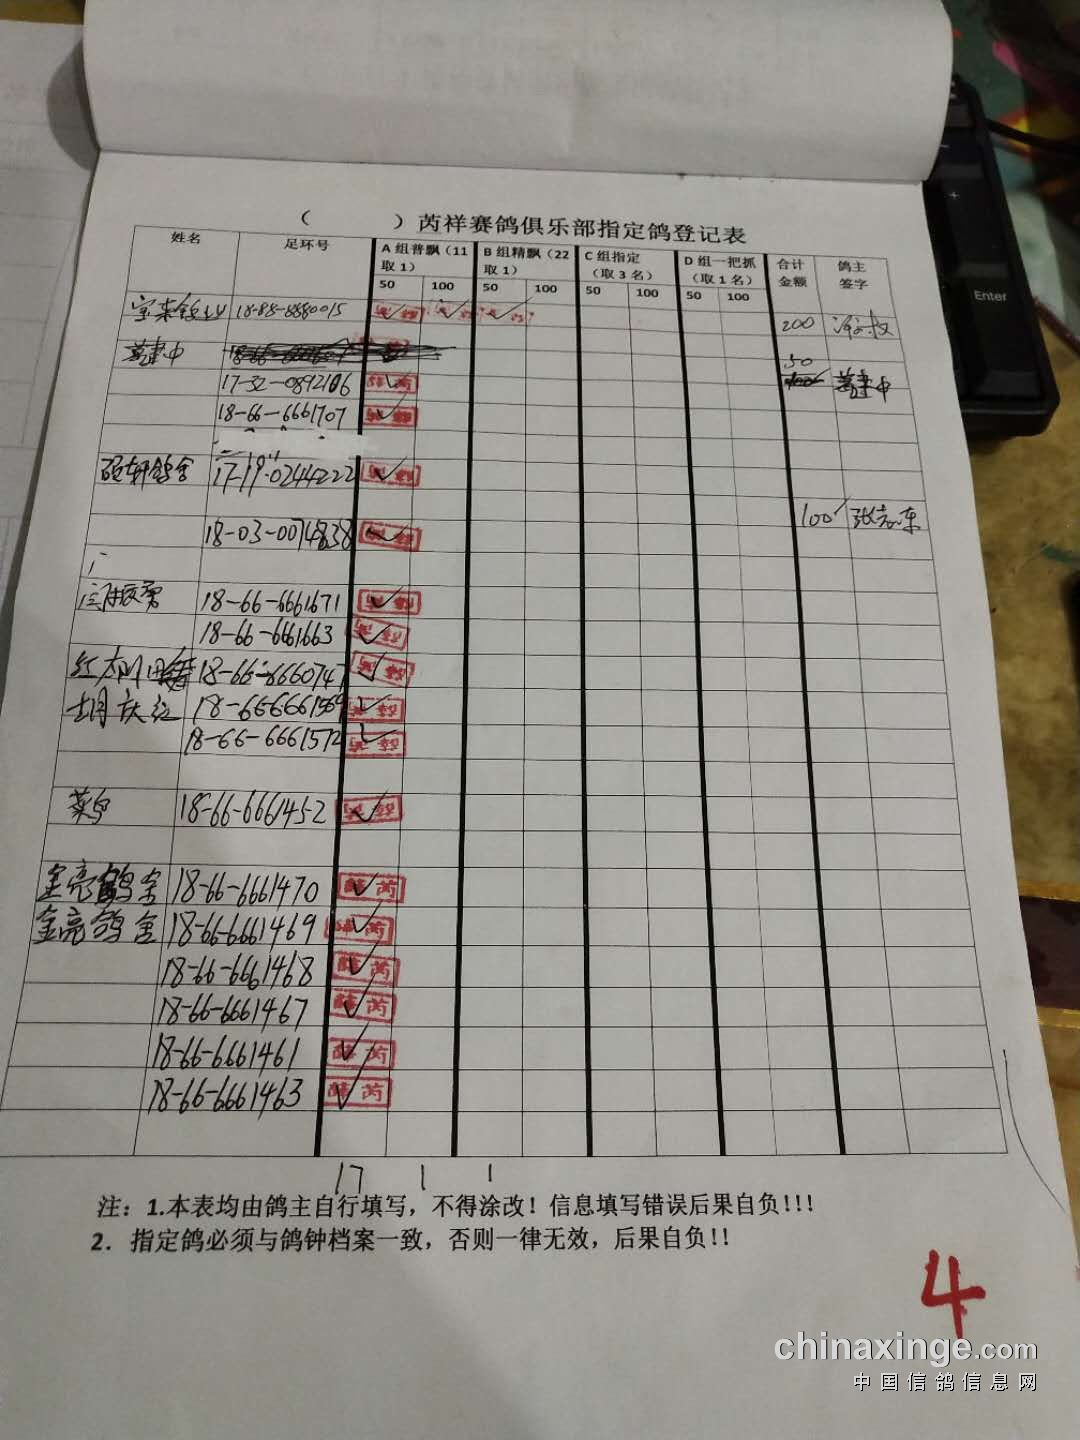 （ ）芮祥赛鸽俱乐部指定鸽登记表
姓名 足环号 A组普飘（11取1） B组精飘（22取1） C组指定（取3名） D组一把抓（取1名） 合计金额 鸽主签字
50 100 50 100 50 100 50 100
18-88-8880015 ✓ ✓ ✓ 200
50
17-32-0892106 ✓
18-66-6661707 ✓
硕轩鸽舍 17-19-0244222 ✓
18-03-0074838 ✓ 100
闫振勇 18-66-6661671 ✓
18-66-6661663 ✓
18-66-6660747 ✓
胡庆红 18-66-6661569 ✓
18-66-6661572 ✓
18-66-6661452 ✓
金亮鸽舍 18-66-6661470 ✓
金亮鸽舍 18-66-6661469 ✓
18-66-6661468 ✓
18-66-6661467 ✓
18-66-6661461 ✓
18-66-6661463 ✓
17 1 1
注：1.本表均由鸽主自行填写，不得涂改！信息填写错误后果自负!!!
2．指定鸽必须与鸽钟档案一致，否则一律无效，后果自负!!
4
Enter
chinaxinge.com
中国信鸽信息网